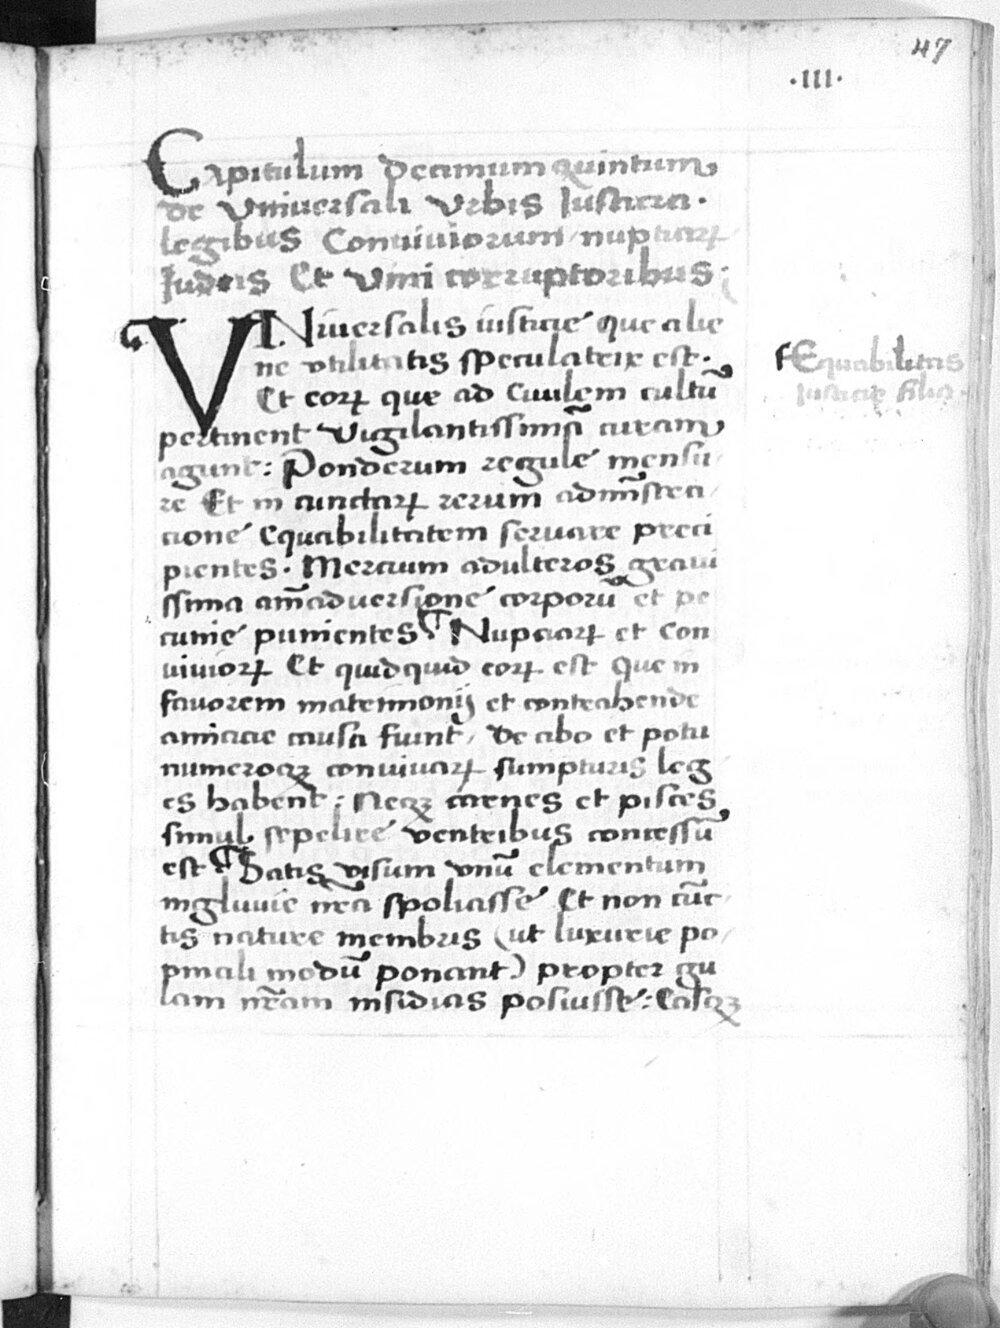 47
·III·
Capitulum Decimum quintum
de Vniuersali Vrbis Iusticia·
legibus Conuiuiorum nuptiarꝝ
Iudeis Et Vini corruptoribus·
VNiuersalis iusticie que alie
ne vtilitatis speculatrix est·
Et eorꝝ que ad Ciuilem cultū
pertinent Vigilantissimā curam
agunt: Ponderum regule mensu
re Et in cunctarꝝ rerum admīstra
cione Equabilitatem seruare preci
pientes· Mercium adulteros graui
ssima aīaduersione corporū et pe
cunie punientes ¶ Nupciarꝝ et Con
uiuiorꝝ Et quidquid eorꝝ est Que in
fauorem matrimonij et contrahende
amicicie causa fiunt, De cibo et potu
numeroqꝫ conuiuarꝝ sumpturis leg
es habent: Neqꝫ carnes et pisces
simul sepelire ventribus concessū
est ¶ Satis visum vnū elementum
ingluuie nr̄a spoliasse Et non cūc
tis nature membris (ut luxurie po
pinali modū ponant) propter gu
lam nr̄am insidias posuisse: Casqꝫ
Equabilitas
iusticie filia·